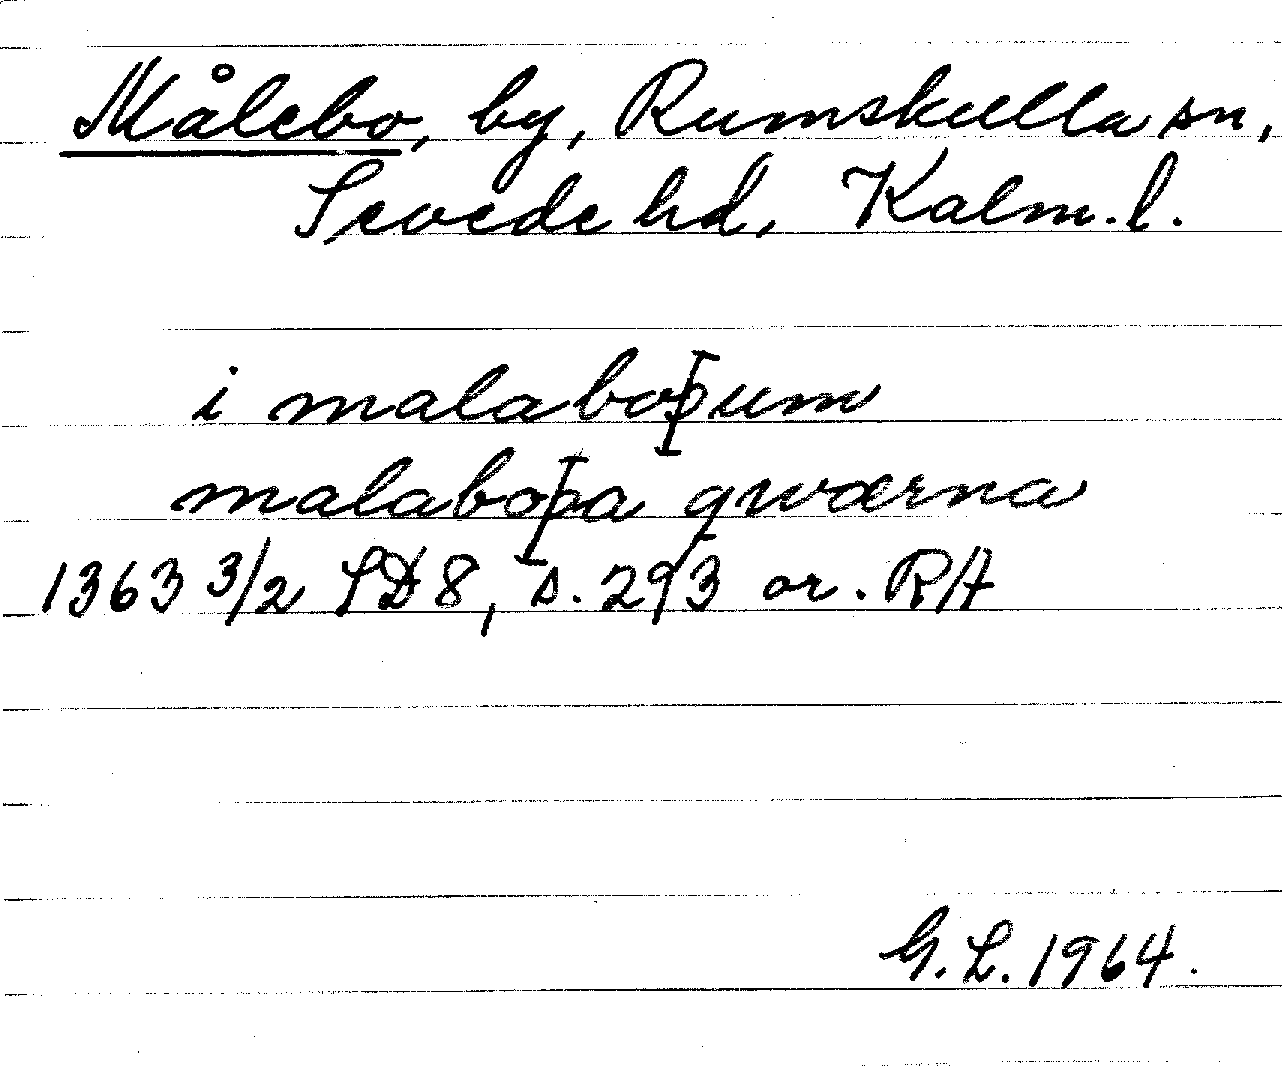 Målebo, by, Rumskulla sn,
Sevede hd, Kalm. l.
i malaboþum
malaboþa qwærna
1363 3/2 SD 8, s. 293 or. RA
G. L. 1964.